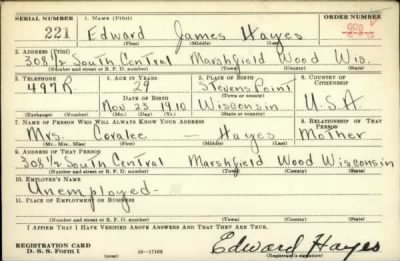 SERIAL NUMBER 1. NAME (Print) ORDER NUMBER
221 Edward James Hayes
(First) (Middle) (Last)
2. ADDRESS (Print)
308 1/2 South Central Marshfield Wood Wis.
(Number and street or R. F. D. number) (Town) (County) (State)
3. TELEPHONE 4. AGE IN YEARS 5. PLACE OF BIRTH 6. COUNTRY OF CITIZENSHIP
497R 29 Stevens Point
DATE OF BIRTH (Town or county)
Nov 23 1910 Wisconsin U.S.A
(Exchange) (Number) (Mo.) (Day) (Yr.) (State or country)
7. NAME OF PERSON WHO WILL ALWAYS KNOW YOUR ADDRESS 8. RELATIONSHIP OF THAT PERSON
Mrs. Coralee — Hayes Mother
(Mr., Mrs., Miss) (First) (Middle) (Last)
9. ADDRESS OF THAT PERSON
308 1/2 South Central Marshfield Wood Wisconsin
(Number and street or R. F. D. number) (Town) (County) (State)
10. EMPLOYER'S NAME
Unemployed -
11. PLACE OF EMPLOYMENT OR BUSINESS
(Number and street or R. F. D. number) (Town) (County) (State)
I AFFIRM THAT I HAVE VERIFIED ABOVE ANSWERS AND THAT THEY ARE TRUE.
REGISTRATION CARD
D. S. S. Form 1 16—17105 Edward Hayes
(Registrant's signature)